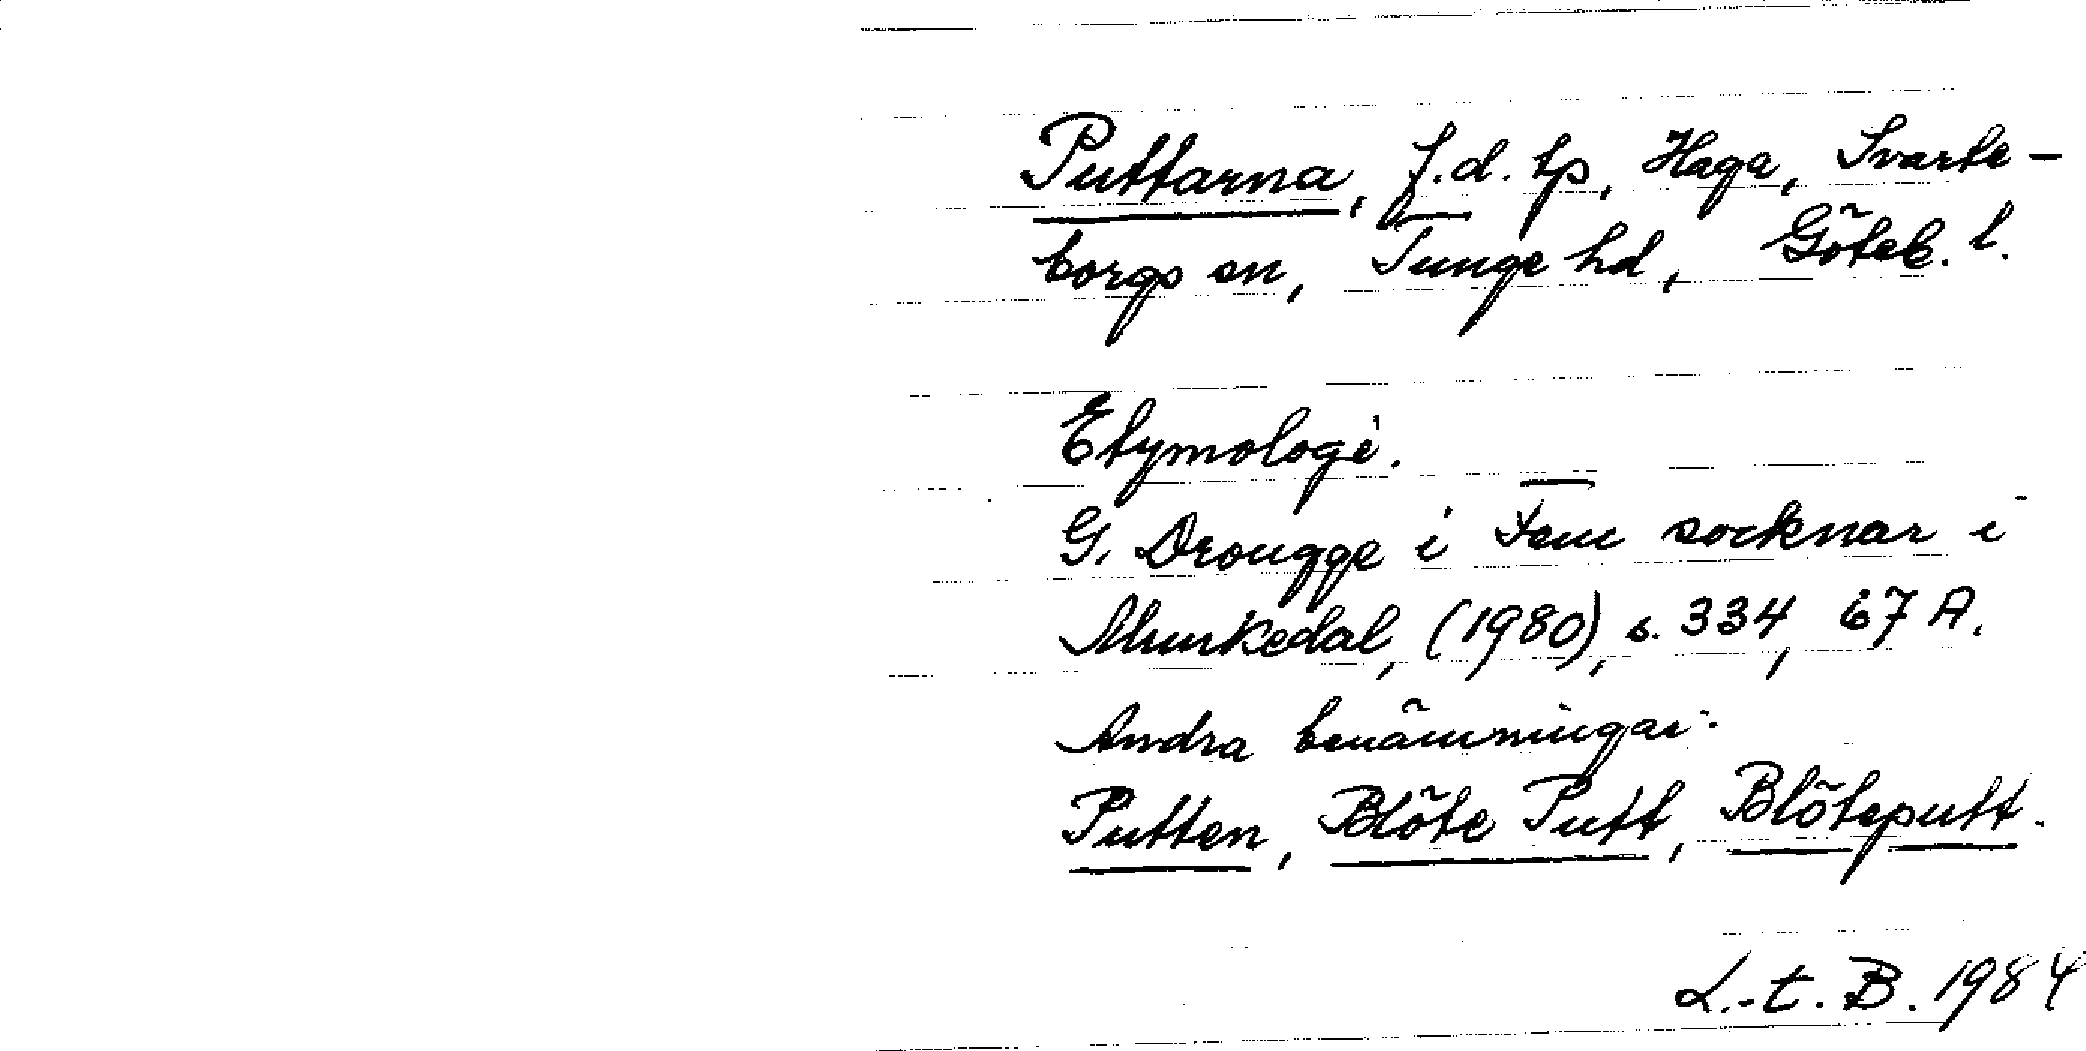 Puttarna, f.d. tp, Haga, Svarte-
borgs sn, Tunge hd, Göteb. l.
Etymologi.
G. Drougge i Fem socknar i
Munkedal, (1980), s. 334, 67 A.
Andra benämningar:
Putten, Blöte Putt, Blöteputt.
L.-t. B. 1984